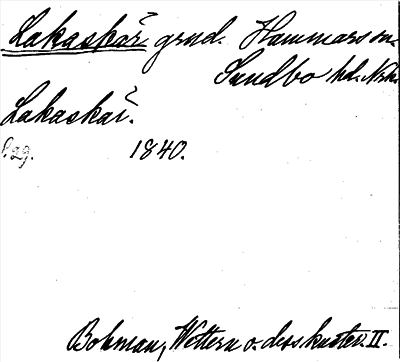 Lakaskär grnd. Hammars sn.
Sundbo hd. Nrk.
Lakaskär.
s. 29. 1840.
Bohman, Wettern o. dess kuster. II.